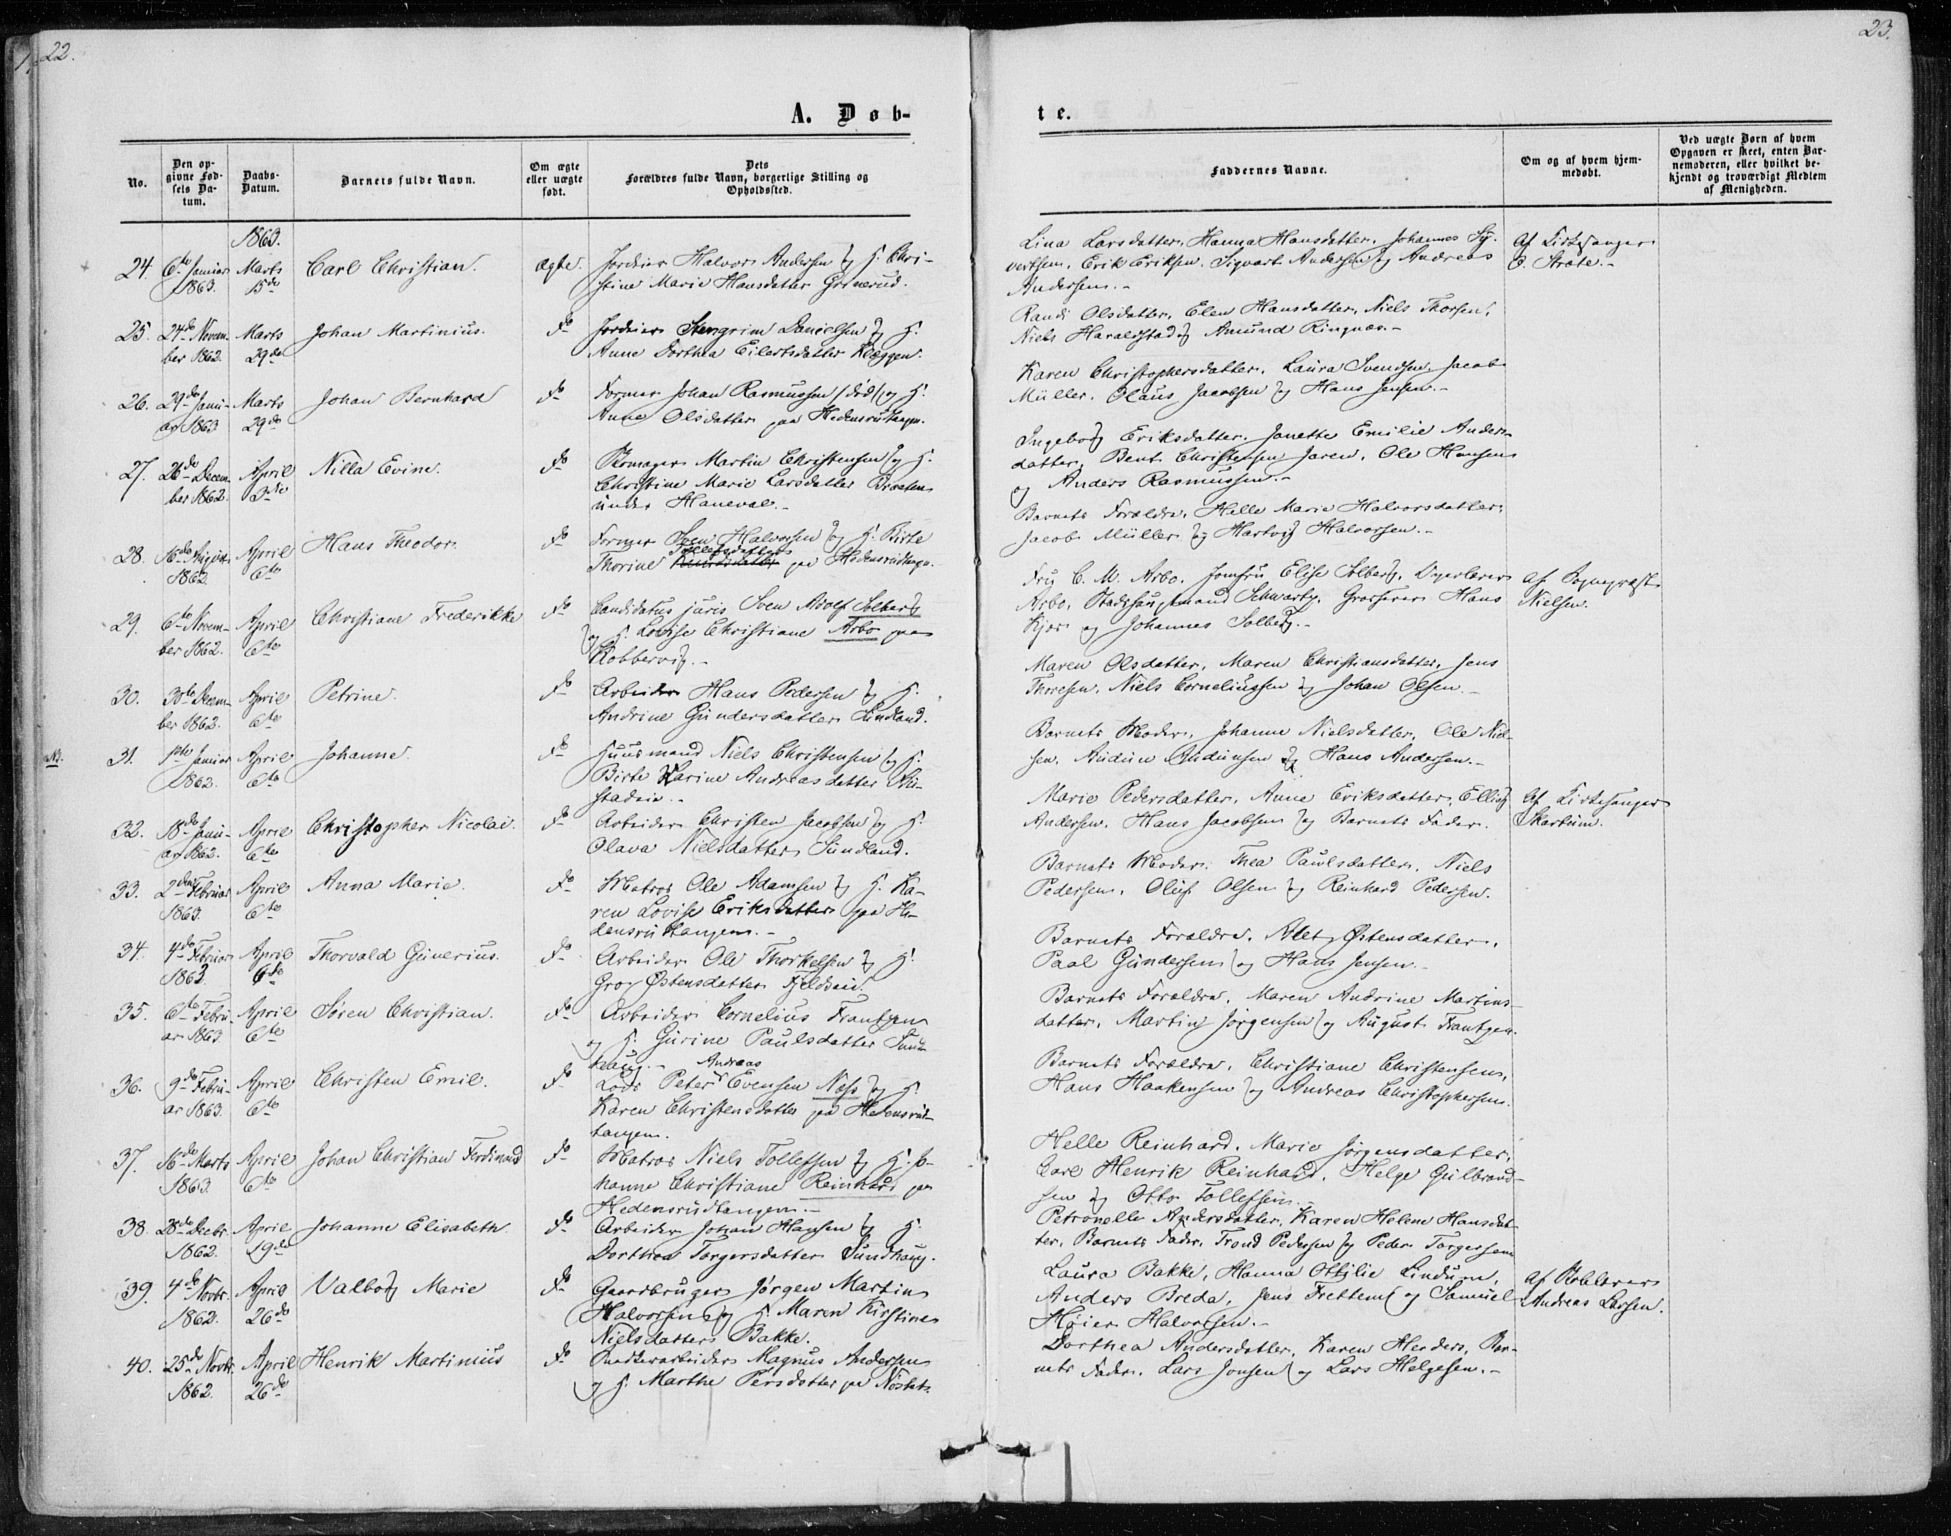 22.
23.
A. Døb-
te.
No.
Den op-
givne Fød-
sels Da-
tum.
Daabs-
Datum.
Barnets fulde Navn.
Om ægte
eller uægte
født.
Dets
Forældres fulde Navn, borgerlige Stilling og
Opholdssted.
Faddernes Navne.
Om og af hvem hjem-
medøbt.
Ved uægte Børn af hvem
Opgaven er skeet, enten Bar-
nemoderen, eller hvilket be-
kjendt og troværdigt Medlem
af Menigheden.
1863.
24. 6te Januar 1863. Marts 15de Carl Christian. ægte. Jordeier Halvor Andersen og H. Chri-
stine Marie Hansdatter Grønerud.
Lina Larsdatter, Hanna Hansdatter, Johannes Sy-
vertsen, Erik Eriksen, Sigvart Andersen og Andreas
Andersen.-
Af Kirkesanger
O. Strøte.-
25. 24de Novem-
ber 1862. Marts 29de Johan Martinius. do Jordeier Stengrim Danielsen og H.
Anne Dorthea Eilertsdatter Kleggen.
Randi Olsdatter, Elen Hansdatter, Niels Thorsen,
Niels Haraldstad og Amund Ringnæs.-
26. 29de Janu-
ar 1863 Marts 29de Johan Bernhard do Former Johan Rasmussen (død) og H.
Anne Olsdatter paa Hedensrudtangen.
Karen Christophersdatter, Laura Svendsen, Jacob
Müller, Olaus Jacobsen og Hans Jensen.-
27. 26de Decem-
ber 1862. April 3die Nilla Evine. do Skomager Martin Christensen og H.
Christine Marie Larsdatter Braaten
under Haneval.-
Ingeborg Eriksdatter, Janette Emilie Anders-
datter, Bent Christensen Jaren, Ole Hansen
og Anders Rasmussen.-
28. 16de 1863. April 6te Hans Theodor. do Former Iver Halvorsen og H. Birte
Thorine Tollefsdatter paa Hedensrudtangen.
Barnets Forældre, Helle Marie Halvorsdatter,
Jacob Müller og Hartvig Halvorsen.-
29. 6te Novem-
ber 1862. April 6te Christiane Frederikke do Candidatus juris Sven Adolf Solberg
og H. Lovise Christiane Arbo paa
Kobbervig.-
Fru C. M. Arbo, Jomfru Elise Solberg, Overlærer
Arbo, Stadshauptmand Schwartz, Grosserer Hans
Kjær og Johannes Solberg.-
af Sognepræst
Nielsen.
30. 30te Decem-
ber 1862. April 6te Petrine. do Arbeider Hans Pedersen og H.
Andrine Gundersdatter Sundland.
Maren Olsdatter, Maren Christiansdatter, Jens
Thoresen, Niels Corneliussen og Johan Olsen.-
31. 1ste Januar
1862. April 6te Johanne. do Huusmand Niels Christensen og H.
Birte Karine Andreasdatter
Barnets Moder, Johanne Nielsdatter, Ole Niel-
sen, Audun Audunsen og Hans Andersen.-
32. 18de Janu-
ar 1862. April 6te Christopher Nicolai. do Arbeider Christen Jacobsen og H.
Olava Nielsdatter Sundland.
Marie Pedersdatter, Anne Eriksdatter, Elling
Andersen, Hans Jacobsen og Barnets Fader.
Af Kirkesanger
Skartum.
33. 2den Februar
1863. April 6te Anna Marie. do Matros Ole Adamsen og H. Ka-
ren Lovise Eriksdatter paa He-
densrudtangen.-
Barnets Moder, Thea Paulsdatter, Niels
Pedersen, Oluf Olsen og Reinhard Pedersen.
34. 4de Februar
1863 April 6te Thorvald Gunerius. do Arbeider Ole Thorkelsen og H.
Gro Østensdatter Fjeldseie.
Barnets Forældre, Alet Østensdatter,
Paal Gundersen og Hans Jensen.-
35. 6te Febru-
ar 1863 April 6te Søren Christian. do Arbeider Cornelius Frantzen
og H. Gurine Paulsdatter Sund-
haug.-
Barnets Forældre, Maren Andrine Martins-
datter, Martin Jørgensen og August Frantzen.
36. 9de Febru-
ar 1863. April 6te Christen Emil. do Lods Peter Andreas Evensen Næss og H.
Karen Christensdatter paa Hedensrud-
tangen.
Barnets Forældre, Christiane Christensen,
Hans Haakensen og Andreas Christophersen.
37. 16de Marts
1863. April 6te Johan Christian Ferdinand do Matros Niels Tollefsen og H. Jo-
hanne Christiane Reinhard paa
Hedensrudtangen.-
Helle Reinhard, Marie Jørgensdatter,
Carl Henrik Reinhard, Helge Gulbrand-
sen og Otto Tollefsen.
38. 28de Decbr.
1862. April 19de Johanne Elisabeth. do Arbeider Johan Hansen og H.
Dorthea Torgersdatter Sundhaug.
Petronelle Andersdatter, Karen Helene Hansdat-
ter, Barnets Fader, Trond Pedersen og Peder Torgersen
39. 4de Novbr.
1862. April 26de Valborg Marie do Gaardbruger Jørgen Martin
Halvorsen og H. Maren Kirstine
Nielsdatter Bakke.
Laura Bakke, Hanna Ottilie Lindum,
Anders Breda, Jens Frettem og Samuel
Høier Halvorsen.-
af Skolelærer
Andreas Larsen.
40. 25de Novbr.
1862. April 26de Henrik Martinius do Andersen
og H. Marthe Persdatter paa Nøstet.
Dorthea Andersdatter, Karen Herders, Bar-
nets Fader, Lars Jonsen og Lars Helgesen.-